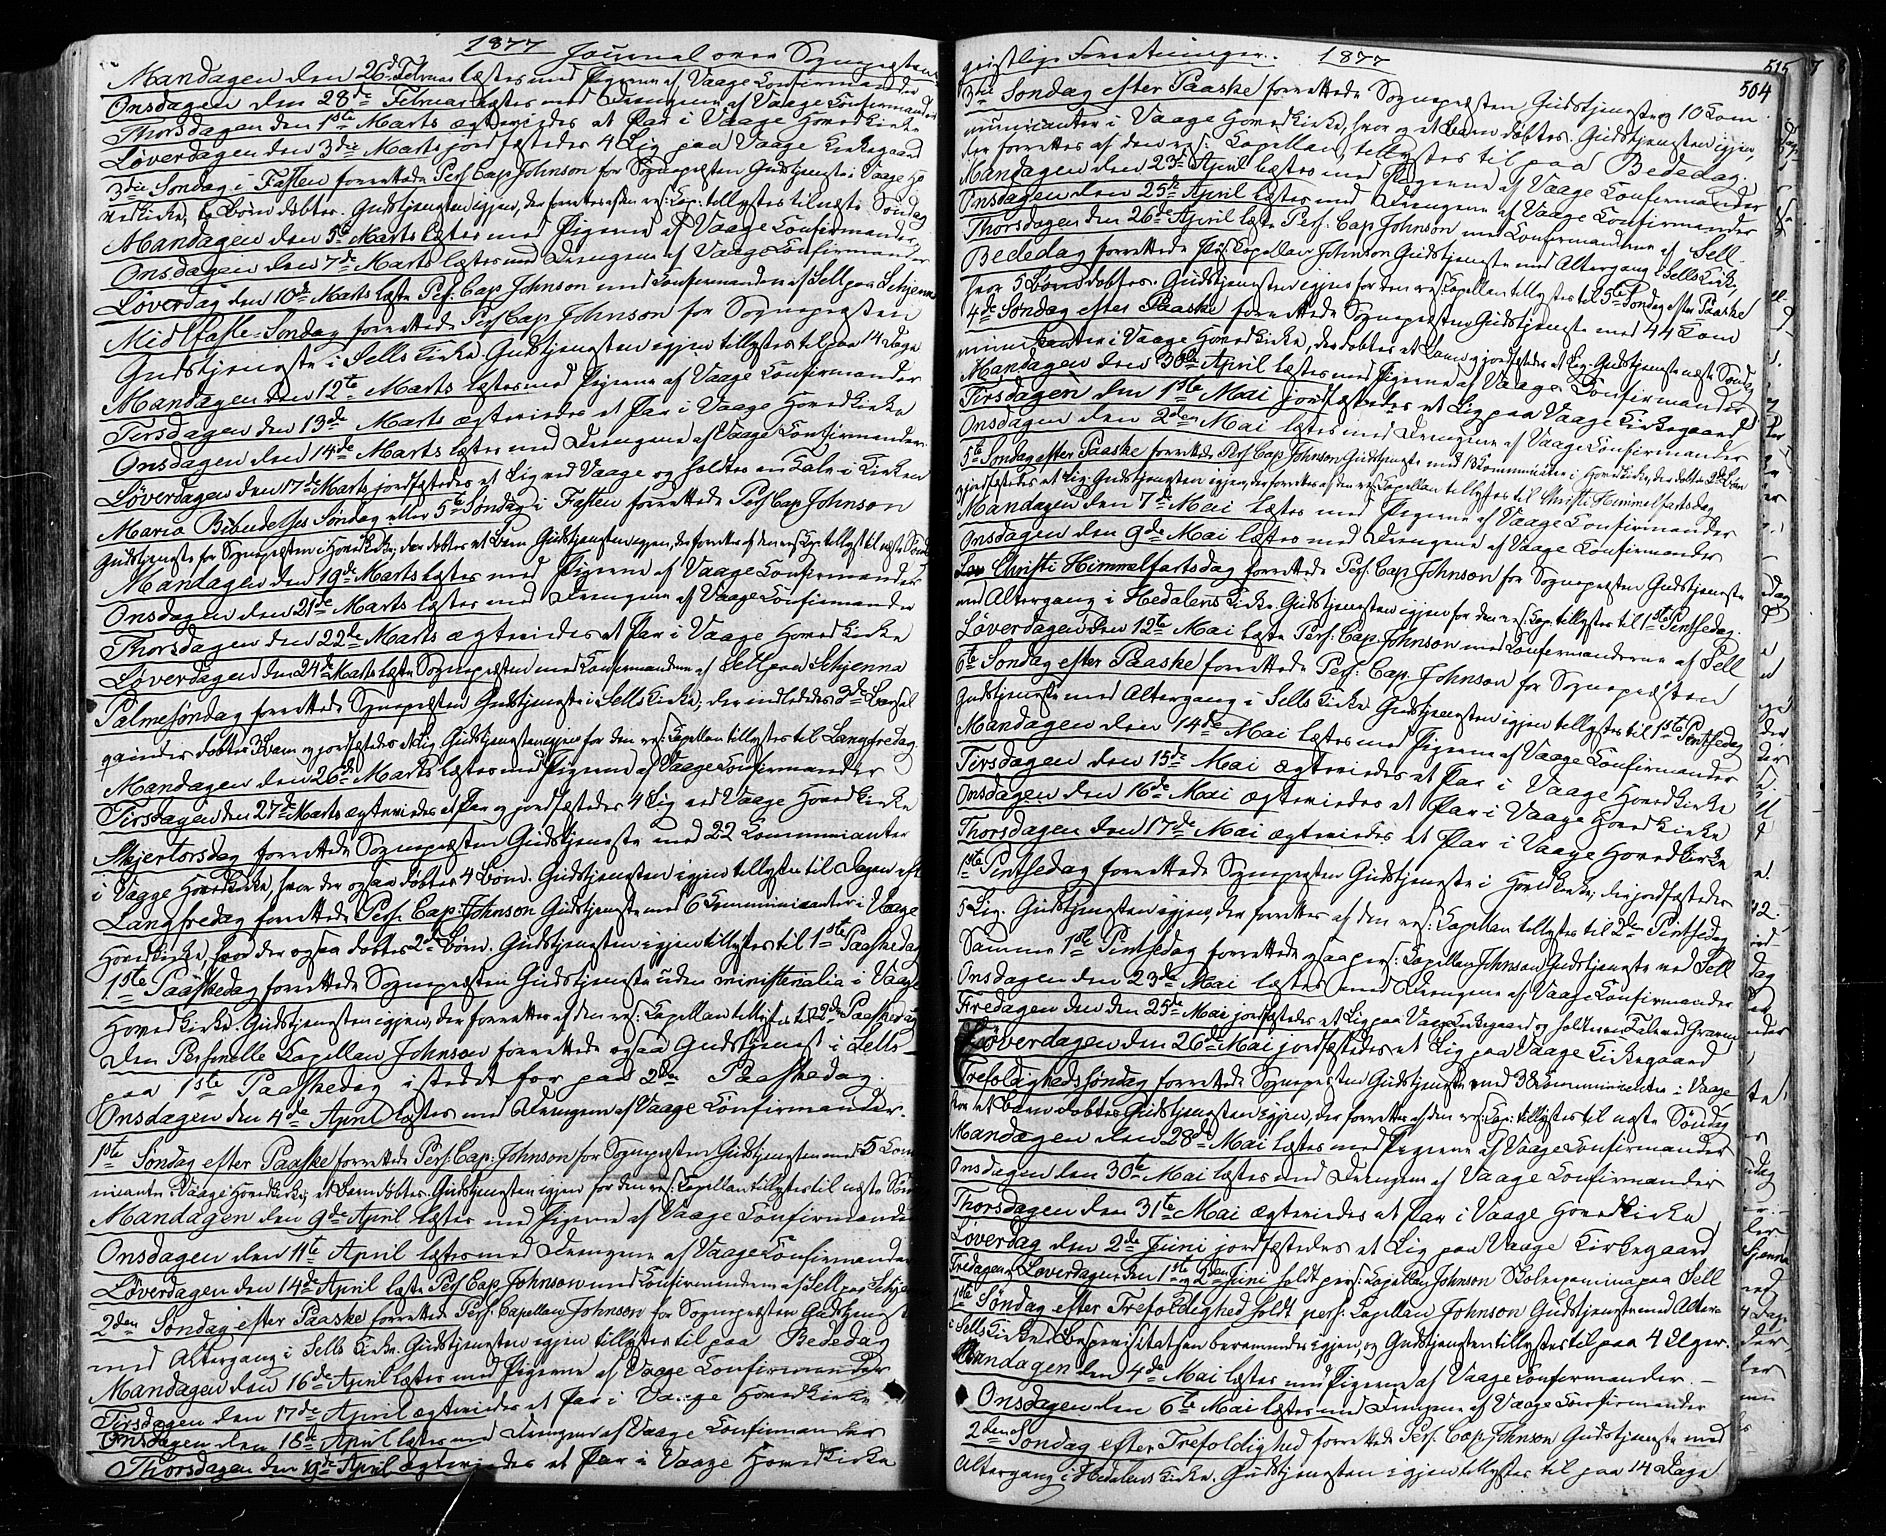 1877 Journal over Sognepræstens
Mandagen den 26de Februar læstes med Pigerne af Vaage Confirmander
Onsdagen den 28de Februar læstes med Drengene af Vaage Confirmander
Thorsdagen den 1ste Marts ægteviedes et Par i Vaage Hovedkirke
Løverdagen den 3die Marts jordfæstedes 4 Lig paa Vaage Kirkegaard
3die Søndag i Fasten forrettede Pers. Cap. Johnson for Sognepræsten Gudstjeneste i Vaage Ho
vedkirke, Børn døbtes. Gudstjenesten igjen, der forrettes af den res: Cap: tillystes til næste Søndag
Mandagen den 5te Marts læstes med Pigerne af Vaage Confirmander
Onsdagen den 7de Marts læstes med Drengene af Vaage Confirmander
Løverdag den 10de Marts læste Pers. Cap. Johnson med Confirmanden af Sell paa Schjenna
Midtfaste-Søndag forrettede Pers Cap Johnson for Sognepræsten
Gudstjeneste i Sells Kirke. Gudstjenesten igjen tillystes til paa 14 Dage
Mandagen den 12te Marts læstes med Pigerne af Vaage Confirmander
Tirsdagen den 13de Marts ægteviedes et Par i Vaage Hovedkirke
Onsdagen den 14de Marts læstes med Drengene af Vaage Confirmander
Løverdagen den 17de Marts jordfæstedes et Lig ved Vaage og holdtes en Tale i Kirken
Maria Bebudelses Søndag eller 5te Søndag i Fasten forrettede Pers Cap Johnson
Gudstjeneste for Sognepræsten i Hovedkirke, der døbtes et Barn Gudstjenesten igjen, der forrettes af den res Cap. tillyst til næste Sønd
Mandagen den 19de Marts læstes med Pigerne af Vaage Confirmander
Onsdagen den 21de Marts læstes med Drengene af Vaage Confirmander
Thorsdagen den 22de Marts ægteviedes et Par i Vaage Hovedkirke
Løverdagen den 24de Marts læste Sognepræsten med Confirmanderne af Sell paa Schjenna
Palmesøndag forrettede Sognepræsten Gudstjeneste i Sells Kirke, der indlededes 3de Barsel
qvinder døbtes 3 Barn og jordfæstedes et Lig Gudstjenesten igjen for den res: Capellan tillystes til Langfredag
Mandagen den 26de Marts læstes med Pigerne af Vaage Confirmander
Tirsdagen den 27de Marts ægteviedes et Par og jordfæstedes 4 Lig ved Vaage Hovedkirke
Skjertorsdag forrettede Sognepræsten Gudstjeneste med 22 Communicanter
i Vaage Hovedkirke, hvor der ogsaa døbtes 4 Børn. Gudstjenesten igjen tillystes til Dagen eft
Langfredag forrettede Pers. Cap: Johnson Gudstjeneste med 6 Communicanter i Vaage
Hovedkirke, hvor der ogsaa døbtes 2de Børn. Gudstjenesten igjen tillystes til 1ste Paaskedag
1ste Paaskedag forrettede Sognepræsten Gudstjeneste uden ministerialia i Vaage
Hovedkirke. Gudstjenesten igjen, der forrettes af den res: Capellan tillystes til 2den Paaskedag
Den Personelle Capellan Johnson forrettede ogsaa Gudstjenest i Sells
paa 1ste Paaskedag istedet for paa 2den Paaskedag.
Onsdagen den 4de April læstes med Drengene af Vaage Confirmander.
1ste Søndag efter Paaske forrettede Pers: Cap: Johnson for Sognepræsten Gudstjenesten med 5 Com
municanter i Vaage Hovedkirke, et Barn døbtes. Gudstjenesten igjen for den res: Capellan tillystes til næste Søn
Mandagen den 9de April læstes med Pigerne af Vaage Confirmander
Onsdagen den 11te April læstes med Drengene af Vaage Confirmander
Løverdagen den 14de April læste Pers Cap Johnson med Confirmanderne af Sell paa Schjen
2den Søndag efter Paaske forrettede Pers. Capellan Johnson for Sognepræsten Gudstjenest
med Altergang i Sells Kirke. Gudstjenesten igjen tillystes til paa Bededag
Mandagen den 16de April læstes med Pigerne af Vaage Confirmander
Tirsdagen den 17de April ægteviedes et Par i Vaage Hovedkirke
Onsdagen den 18de April læstes med Drengene af Vaage Confirmander
Thorsdagen den 19de April ægteviedes et Par i Vaage Hovedkirke
geistlige Forretninger. 1877
515
504
3die Søndag efter Paaske forrettede Sognepræsten Gudstjeneste og 10 Com
municanter i Vaage Hovedkirke, hvor og et Barn døbtes. Gudstjenesten igjen,
der forrettes af den res: Capellan, tillystes til paa Bededag.
Mandagen den 23de April læstes med Pigerne af Vaage Confirmander
Onsdagen den 25de April læstes med Drengene af Vaage Confirmander
Thorsdagen den 26de April læste Pers. Cap Johnson med Confirmanderne af Sell.
Bededag forrettede Pers Capellan Johnson Gudstjeneste med Altergang i Sells Kirke,
hvor 5 Børn døbtes. Gudstjenesten igjen for den res: Capellan tillystes til 5te Søndag efter Paaske
4de Søndag efter Paaske forrettede Sognepræsten Gudstjeneste med 44 Com
municanter i Vaage Hovedkirke, der døbtes et Barn og jordfæstedes et Lig. Gudstjeneste næste Søndag
Mandagen den 30te April læstes med Pigerne af Vaage Confirmander
Tirsdagen den 1ste Mai jordfæstedes et Lig paa Vaage Kirkegaard
Onsdagen den 2den Mai læstes med Drengene af Vaage Confirmander
5te Søndag efter Paaske forrettede Pers Cap Johnson Gudstjeneste med 13 Communicanter i Hovedkirke, der døbtes 2de Børn
og jordfæstedes et Lig. Gudstjenesten igjen, der forrettes af den res: Capellan tillystes til Christi Himmelfartsdag
Mandagen den 7de Mai læstes med Pigerne af Vaage Confirmander
Onsdagen den 9de Mai læstes med Drengene af Vaage Confirmander
Christi Himmelfartsdag forrettede Pers. Cap. Johnson for Sognepræsten Gudstjeneste
med Altergang i Hedalens Kirke. Gudstjenesten igjen for den res: Cap. tillystes til 1ste Pintsedag.
Løverdagen den 12te Mai læste Pers. Cap. Johnson med Confirmanderne af Sell
6te Søndag efter Paaske forrettede Pers. Cap. Johnson for Sognepræsten
Gudstjeneste med Altergang i Sells Kirke Gudstjenesten igjen tillystes til 1ste Pintsedag
Mandagen den 14de Mai læstes med Pigerne af Vaage Confirmander
Tirsdagen den 15de Mai ægteviedes et Par i Vaage Hovedkirke
Onsdagen den 16de Mai ægteviedes et Par i Vaage Hovedkirke
Thorsdagen den 17de Mai ægteviedes et Par i Vaage Hovedkirke
1ste Pintsedag forrettede Sognepræsten Gudstjeneste i Hovedkirke, der jordfæstedes
5 Lig. Gudstjenesten igjen, der forrettes af den res: Capellan tillystes til 2den Pintsedag
Samme 1ste Pintsedag forrettede ogsaa pers: Capellan Johnson Gudstjeneste ved Sell
Onsdagen den 23de Mai læstes med Drengene af Vaage Confirmander
Fredagen den 25de Mai jordfæstedes et Lig paa Vaage Kirkegaard og holdtes en Tale ved Graven
Løverdagen den 26de Mai jordfæstedes et Lig paa Vaage Kirkegaard
Trefoldighedssøndag forrettede Sognepræsten Gudstjeneste med 38 Communicanter i Vaage
hvor et Barn døbtes Gudstjenesten igjen, der forrettes af den res: Cap: tillystes til næste Søndag
Mandagen den 28de Mai læstes med Pigerne af Vaage Confirmander
Onsdagen den 30te Mai læstes med Drengene af Vaage Confirmander
Thorsdagen den 31te Mai ægteviedes et Par i Vaage Hovedkirke
Løverdag den 2de Juni jordfæstedes et Lig paa Vaage Kirkegaard
Fredagen og Løverdagen den 1ste og 2den Juni holdt pers: Capellan Johnson Skoleexamina paa Sell
1ste Søndag efter Trefoldighed holdt pers: Capellan Johnson Gudstjeneste med Alterg
i Sells Kirke. Bispevisitatsen berammedes igjen, og Gudstjenesten tillystes til paa 4 Uger.
Mandagen den 4de Mai læstes med Pigerne af Vaage Confirmander. –
Onsdagen den 6te Mai læstes med Drengene af Vaage Confirmander
2den Søndag efter Trefoldighed forrettede Pers. Cap Johnson Gudstjeneste med
Altergang i Hedalens Kirke. Gudstjenesten igjen tillystes til paa 14 Dage